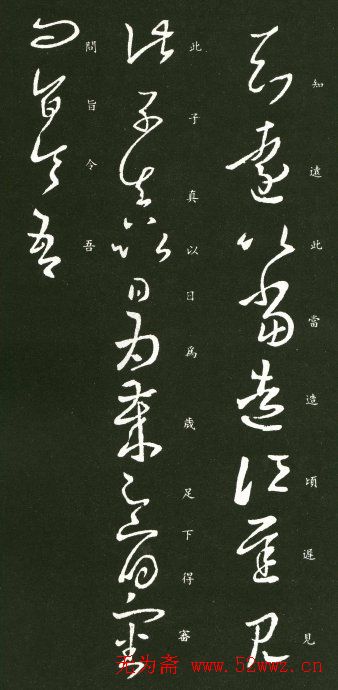 知遠此當造頃遲見
此子真以日爲歲足下得審
問旨令吾
无为斋 www.52wwz.cn